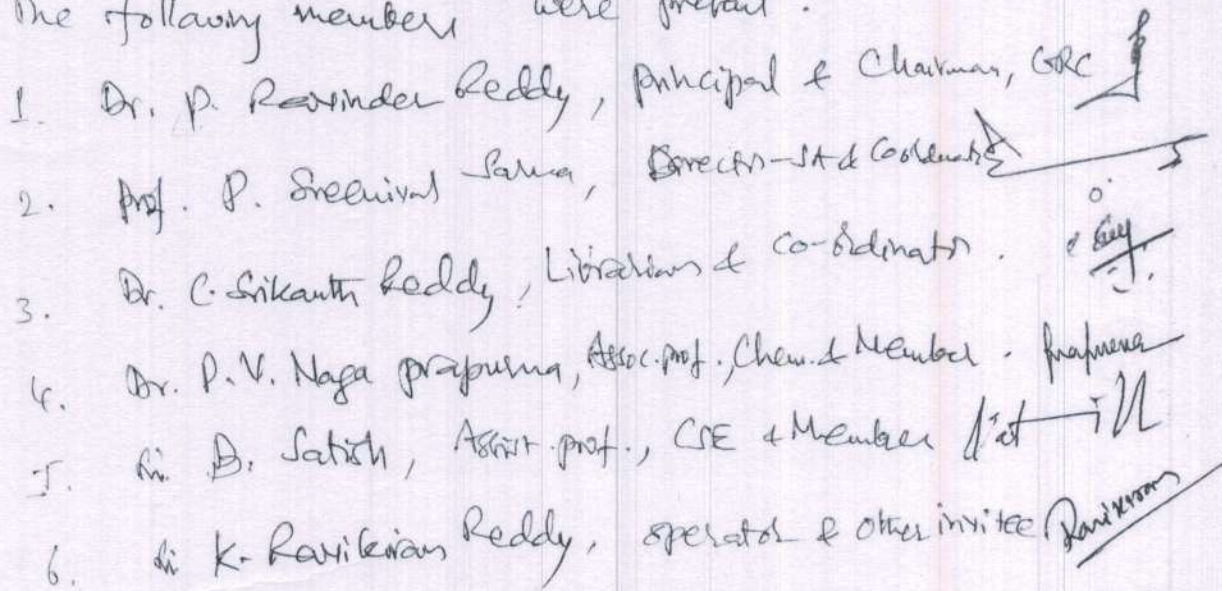 The following members were present.
1. Dr. P. Ravinder Reddy, principal & Chairman, GRC
2. Prof. P. Sreenivas Sarma, Director-SA & Coordinator
3. Dr. C. Srikanth Reddy, Librarian & Co-ordinator.
4. Dr. P.V. Naga prapurna, Assoc. prof., Chem. & Member. Prapurna
5. Sri B. Satish, Assist. prof., CSE & Member
6. Sri K. Ravikiran Reddy, operator & other invitee Ravikiran